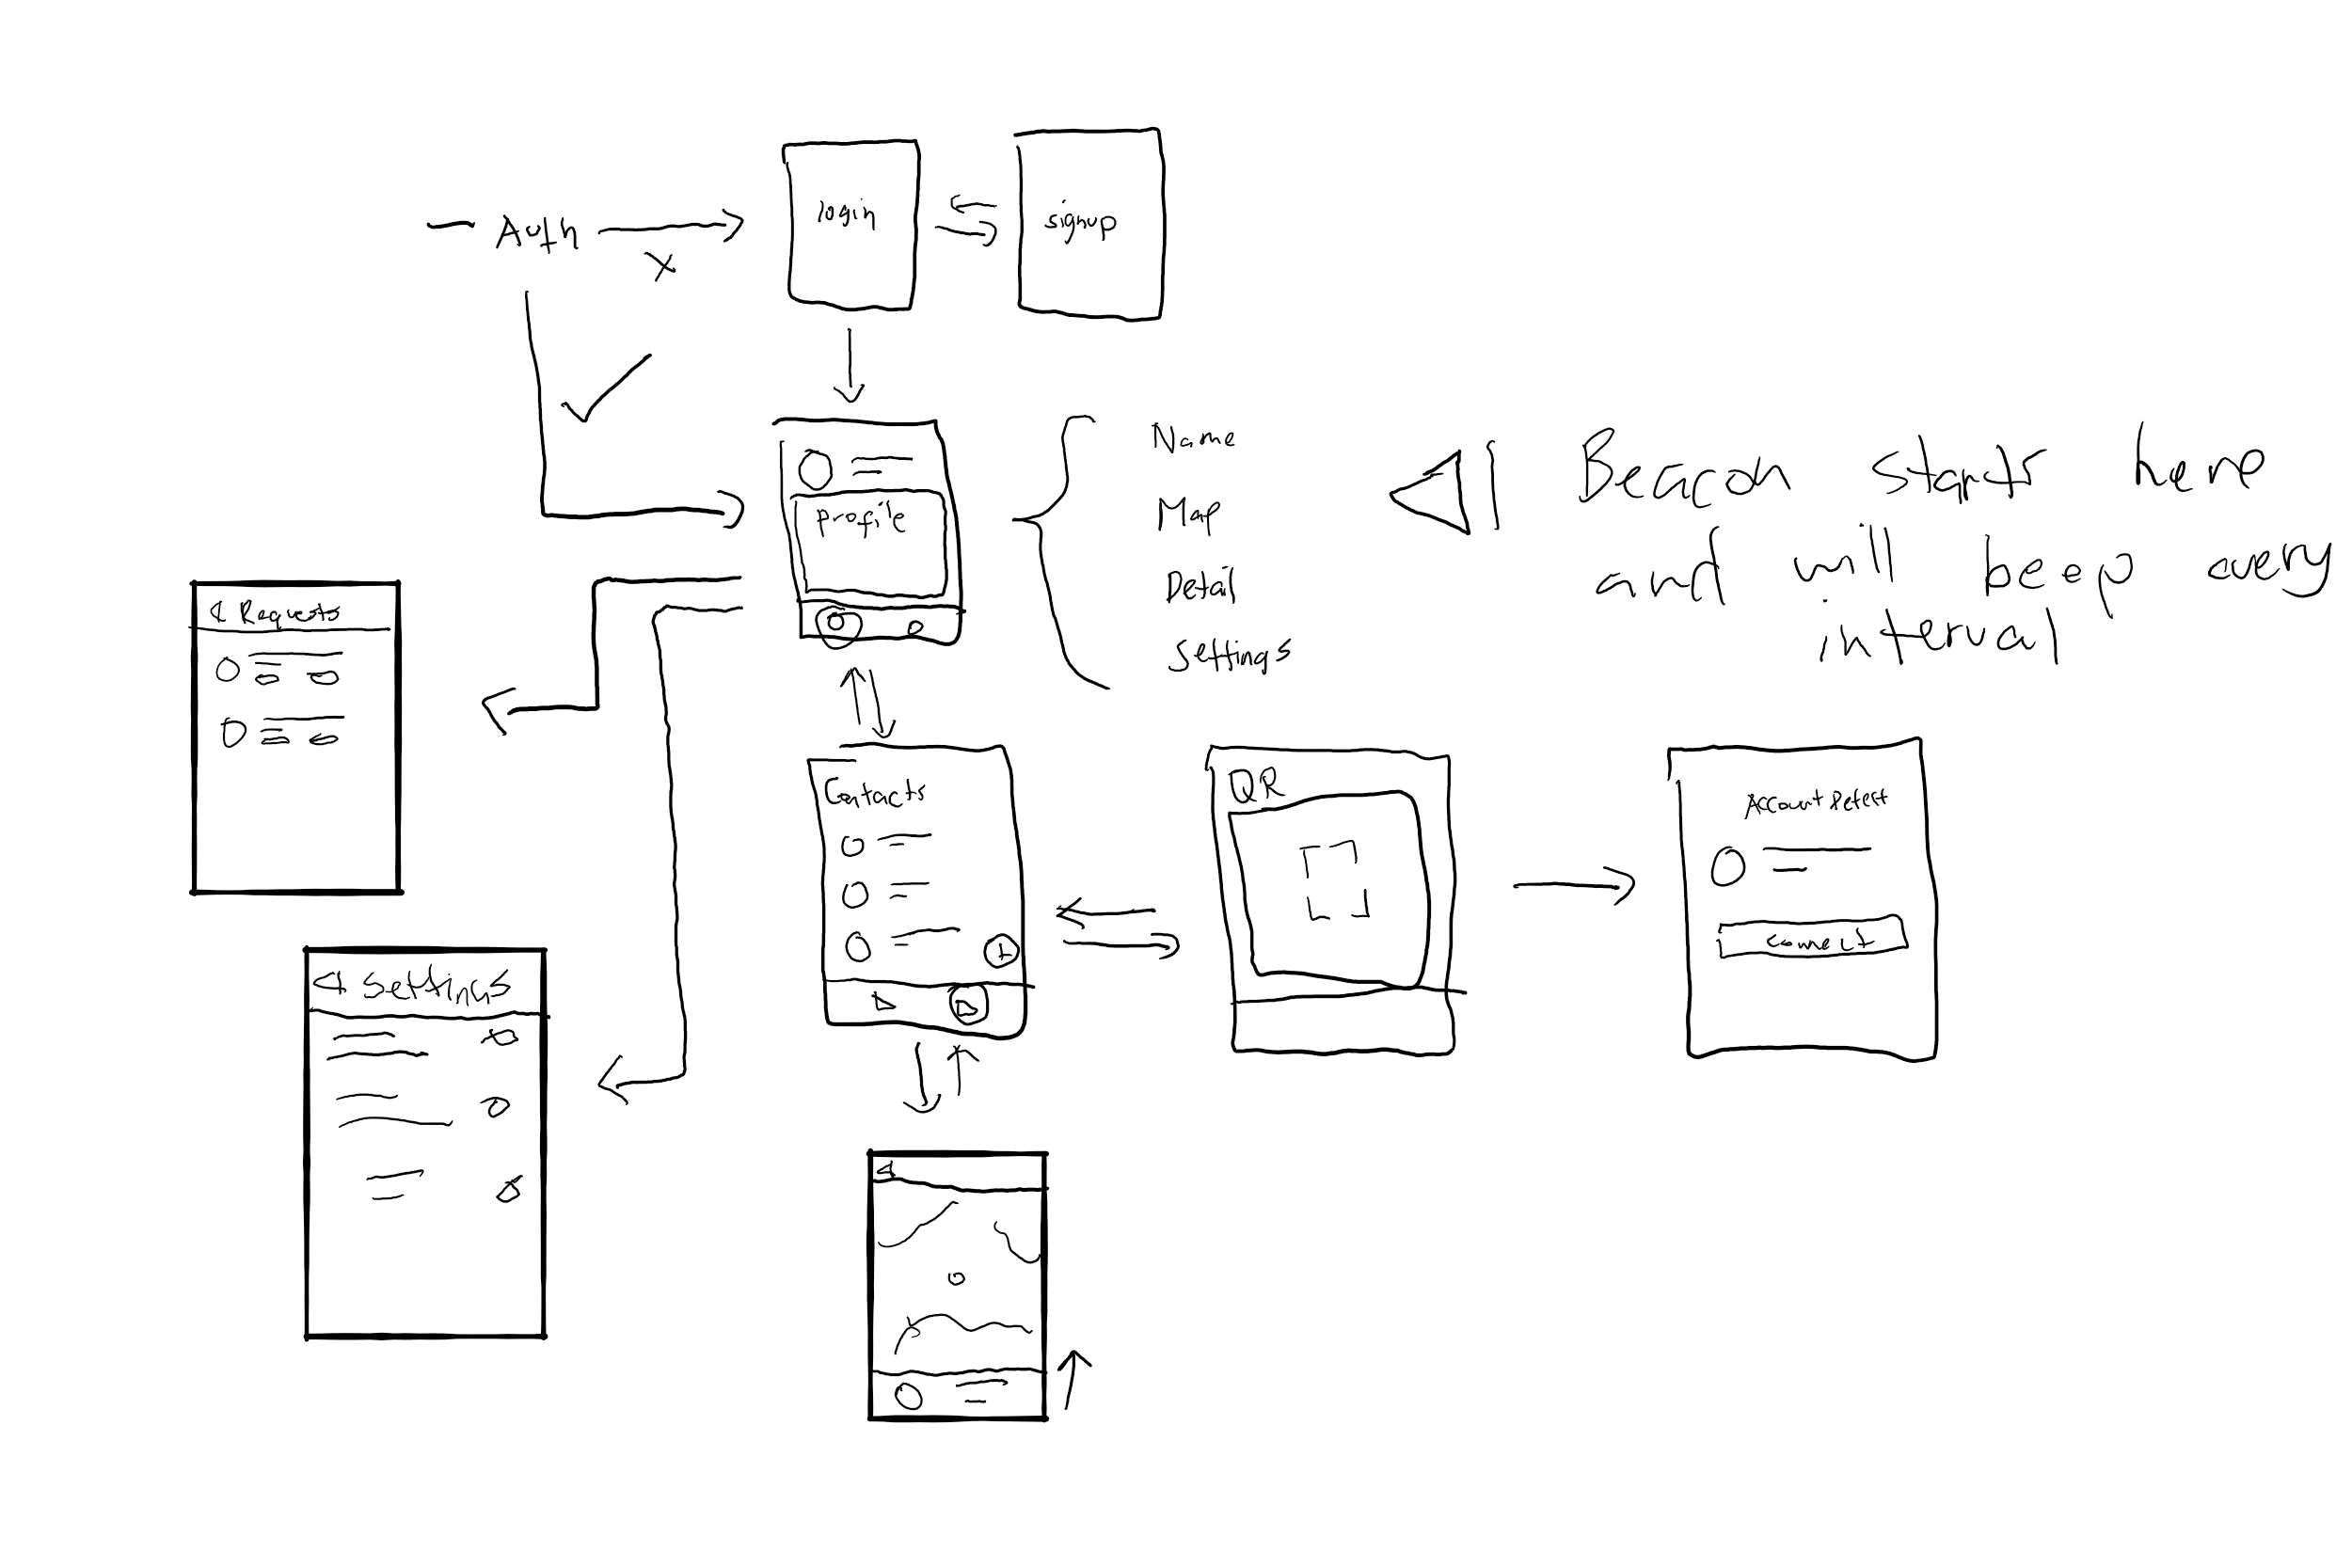 Auth
X
login
signup
profile
Name
Map
Detail
Settings
Beacon starts here
and will beep every
interval
Requests
Settings
Contacts
QR
Account Detect
Connect